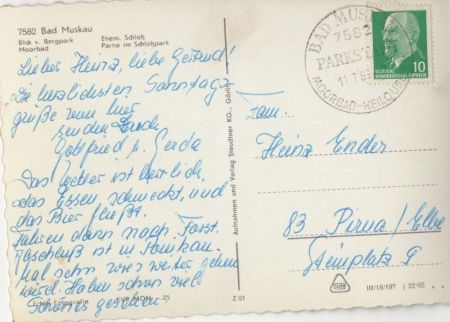 7582 Bad Muskau
Blick v. Bergpark Ehem. Schloß
Moorbad Partie im Schloßpark
Lieber Heinz, liebe Gertrud!
Die herzlichsten Sonntags-
grüße von hier
senden Euch
Gottfried u. Gerda
Das Wetter ist herrlich,
das Essen schmeckt, und
das Bier fließt.
Fahren dann nach Forst.
Abschluß ist in
Mal sehn wie's weiter sehen
wird. Haben schon viel
Schönes gesehen.
Echte Fotografie EVP MDN -,25
Z 01
Aufnahmen und Verlag Steudtner KG., Görlitz
BAD MUSKAU
7582
PARKSTADT
MOORBAD-HEILQUELLE
DEUTSCHE
DEMOKRATISCHE REPUBLIK
10
Fam.
Heinz Ender
83 Pirna/Elbe
Steinplatz 9
III/18/197